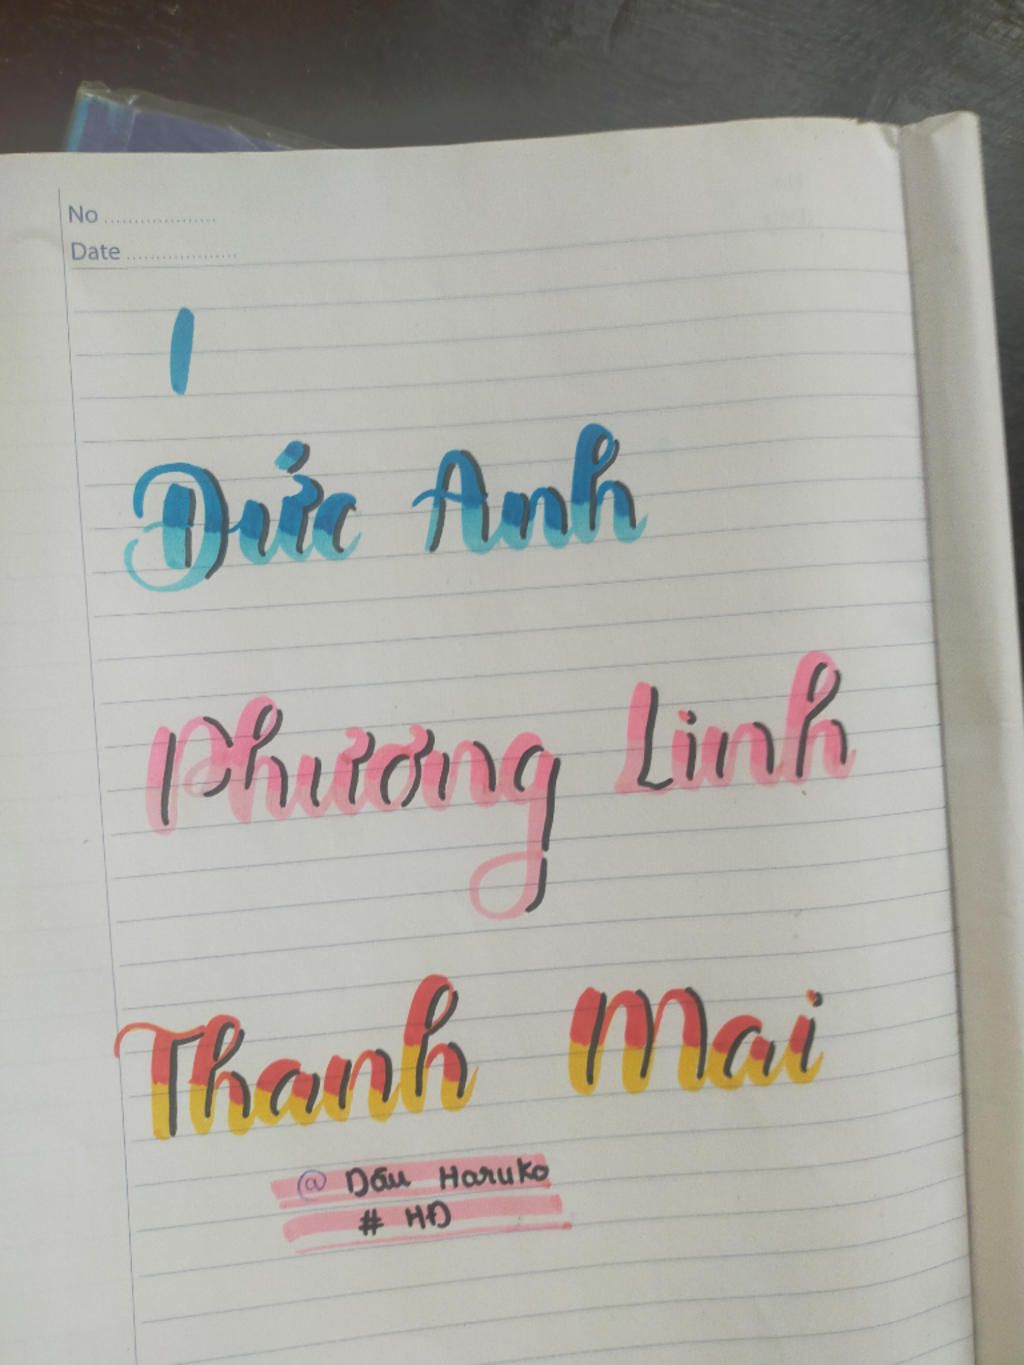 No ....................
Date ....................
Đức Anh
Phương Linh
Thanh Mai
@ Dâu Haruko
# HĐ